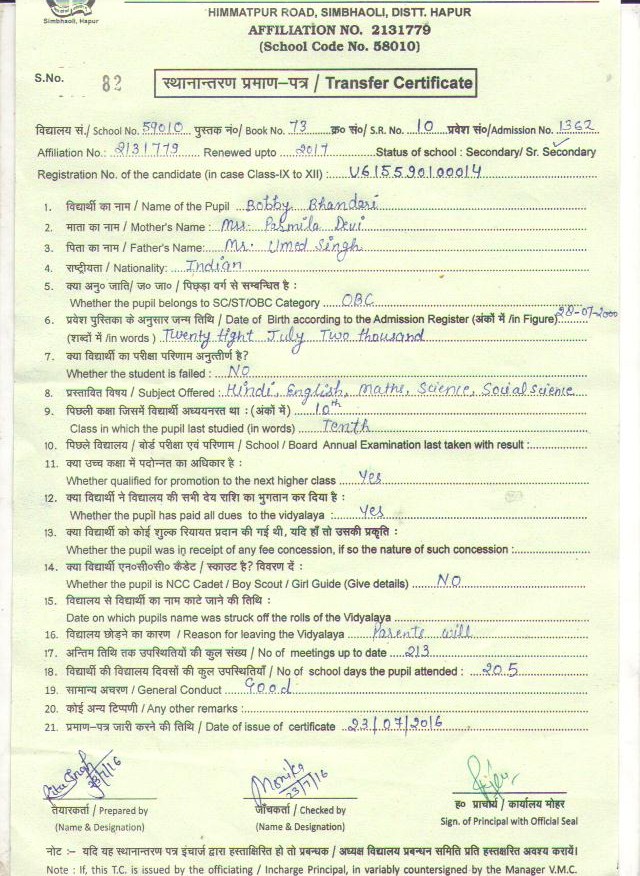 Simbhaoli, Hapur
HIMMATPUR ROAD, SIMBHAOLI, DISTT. HAPUR
AFFILIATION NO. 2131779
(School Code No. 58010)
S.No. 82 स्थानान्तरण प्रमाण–पत्र / Transfer Certificate
विद्यालय सं./ School No. 59010 पुस्तक नं०/ Book No. 73 क्र० सं०/ S.R. No. 10 प्रवेश सं०/Admission No. 1362
Affiliation No.: 2131779 Renewed upto 2017 Status of school : Secondary/ Sr. Secondary
Registration No. of the candidate (in case Class-IX to XII) : V615590100014
1. विद्यार्थी का नाम / Name of the Pupil Bobby Bhandari
2. माता का नाम / Mother's Name : Mrs. Parmila Devi
3. पिता का नाम / Father's Name: Mr. Umed Singh
4. राष्ट्रीयता / Nationality: Indian
5. क्या अनु० जाति/ ज० जा० / पिछड़ा वर्ग से सम्बन्धित है :
Whether the pupil belongs to SC/ST/OBC Category OBC
6. प्रवेश पुस्तिका के अनुसार जन्म तिथि / Date of Birth according to the Admission Register (अंकों में /in Figure) 28-07-2000
(शब्दों में /in words) Twenty Eight July Two thousand
7. क्या विद्यार्थी का परीक्षा परिणाम अनुत्तीर्ण है?
Whether the student is failed : NO
8. प्रस्तावित विषय / Subject Offered : Hindi, English, Maths, Science, Social Science
9. पिछली कक्षा जिसमें विद्यार्थी अध्ययनरत था : (अंकों में) 10th
Class in which the pupil last studied (in words) Tenth
10. पिछले विद्यालय / बोर्ड परीक्षा एवं परिणाम / School / Board Annual Examination last taken with result :
11. क्या उच्च कक्षा में पदोन्नत का अधिकार है :
Whether qualified for promotion to the next higher class Yes
12. क्या विद्यार्थी ने विद्यालय की सभी देय राशि का भुगतान कर दिया है :
Whether the pupil has paid all dues to the vidyalaya : Yes
13. क्या विद्यार्थी को कोई शुल्क रियायत प्रदान की गई थी, यदि हाँ तो उसकी प्रकृति :
Whether the pupil was in receipt of any fee concession, if so the nature of such concession :
14. क्या विद्यार्थी एन०सी०सी० कैडेट / स्काउट है? विवरण दें :
Whether the pupil is NCC Cadet / Boy Scout / Girl Guide (Give details) NO
15. विद्यालय से विद्यार्थी का नाम काटे जाने की तिथि :
Date on which pupils name was struck off the rolls of the Vidyalaya
16. विद्यालय छोड़ने का कारण / Reason for leaving the Vidyalaya Parents will
17. अन्तिम तिथि तक उपस्थितियों की कुल संख्य / No of meetings up to date 213
18. विद्यार्थी की विद्यालय दिवसों की कुल उपस्थितियाँ / No of school days the pupil attended : 205
19. सामान्य अचरण / General Conduct Good
20. कोई अन्य टिप्पणी / Any other remarks :
21. प्रमाण–पत्र जारी करने की तिथि / Date of issue of certificate 23/07/2016
Ritu Singh 23/7/16 Monika 23/7/16
तैयारकर्ता / Prepared by जाँचकर्ता / Checked by ह० प्राचार्य / कार्यालय मोहर
(Name & Designation) (Name & Designation) Sign. of Principal with Official Seal
नोट :– यदि यह स्थानान्तरण पत्र इंचार्ज द्वारा हस्ताक्षिरित हो तो प्रबन्धक / अध्यक्ष विद्यालय प्रबन्धन समिति प्रति हस्तक्षरित अवश्य करावें।
Note : If, this T.C. is issued by the officiating / Incharge Principal, in variably countersigned by the Manager V.M.C.